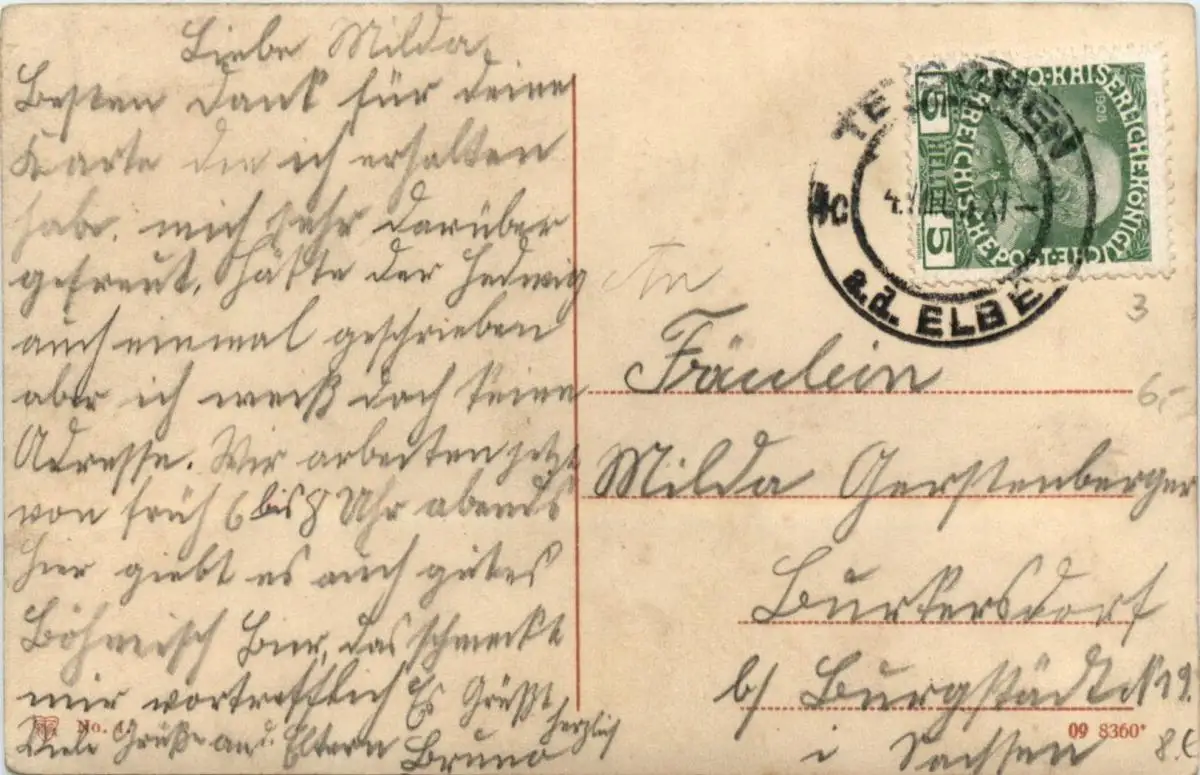 Liebe Milda,
Besten Dank für deine
Karte die ich erhalten
habe. mich sehr darüber
gefreut, hätte der Hedwig
auch einmal geschrieben
aber ich weiß doch keine
Adresse. Wir arbeiten jetzt
von früh 6 bis 8 Uhr abends
hier giebt es auch gutes
Böhmisch Bier, das schmeckt
mir vortrefflich Es Grüßt
herzlich
Viele Grüße an d. Eltern Bruno
No.
TETSCHEN
a.d. ELBE
4.VIII. XI-
5 HELLER 5
KAISERLICHEKÖNIGLICHE
ÖSTERREICHISCHE POST
1908
3
An
Fräulein
6,-
Milda Gerstenberger
Burkersdorf
b/ Burgstädt N 19.
09 8360*
i Sachsen